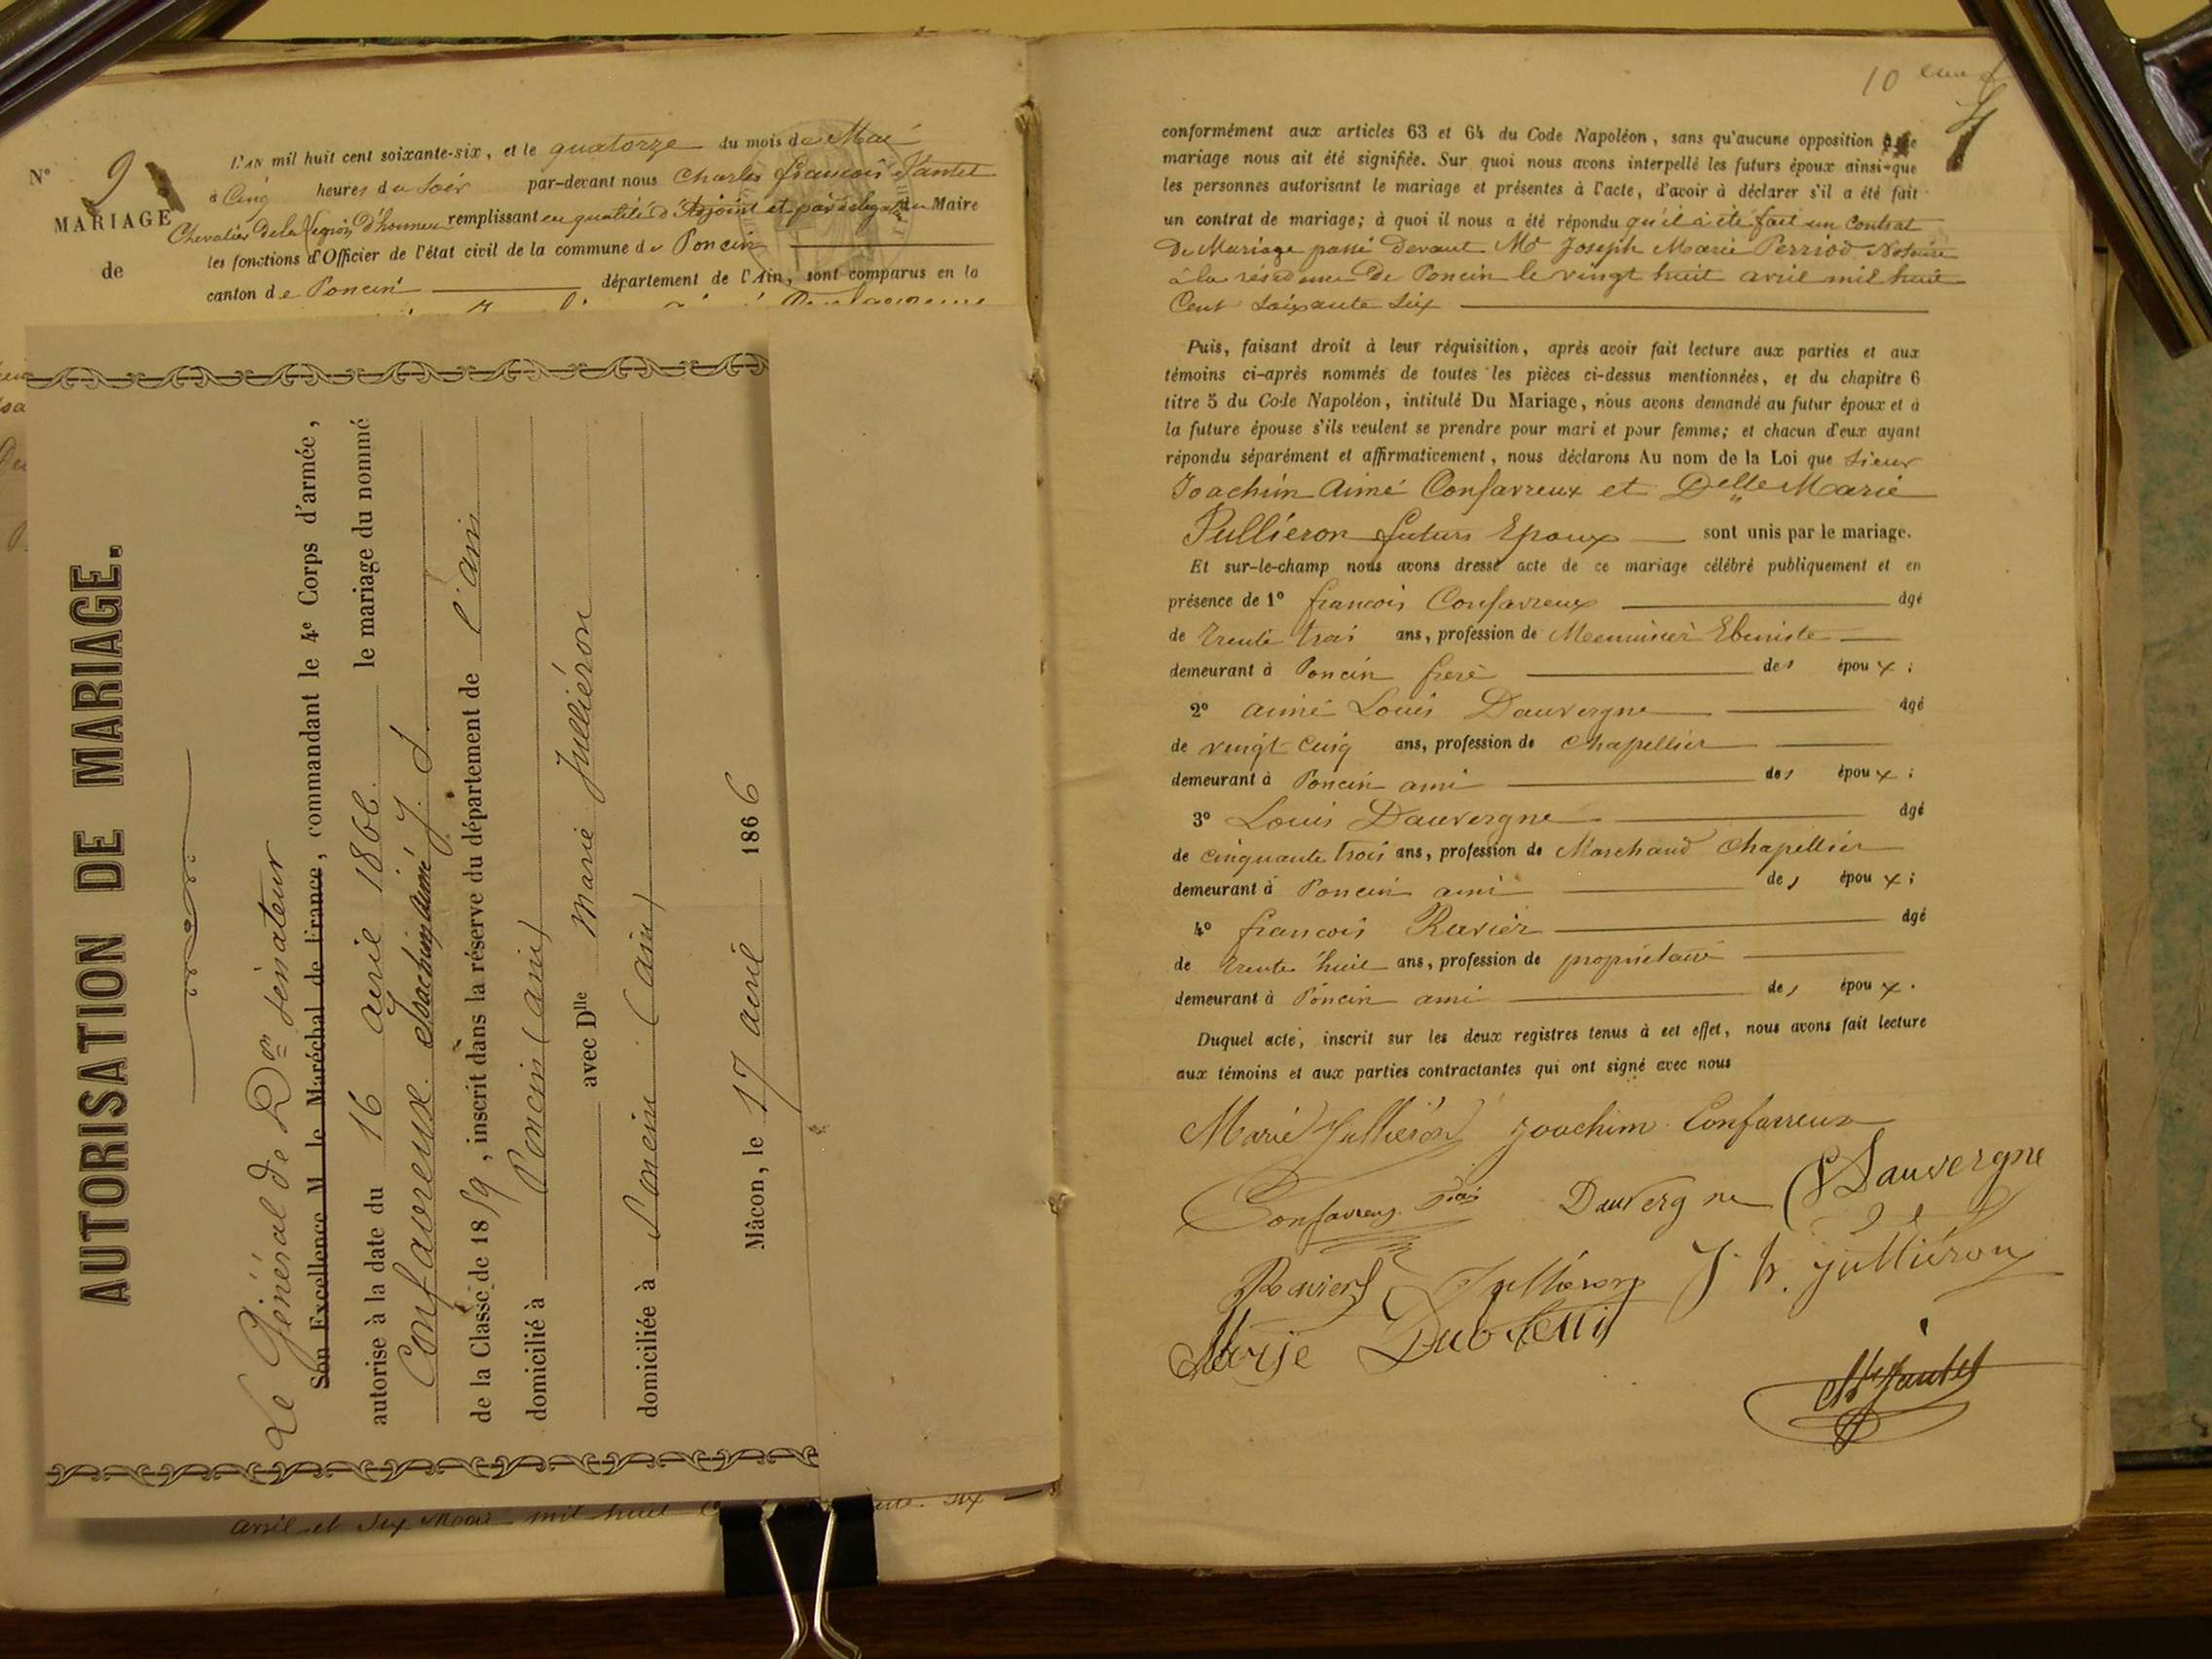 N° 9
MARIAGE
de
L'AN mil huit cent soixante-six, et le quatorze du mois de Mai
à Cinq heures du Soir par-devant nous Charles François Jantet
Chevalier de la Légion D'honneur remplissant en qualité d'Adjoint et par délégation du Maire
les fonctions d'Officier de l'état civil de la commune de Poncin
canton de Poncin département de l'Ain, sont comparus en la
AUTORISATION DE MARIAGE.
Le Général de Don Sénateur
Son Excellence M le Maréchal de France, commandant le 4e Corps d'armée,
autorise à la date du 16 avril 1866 le mariage du nommé
Confavreux Joachim Aimé J. L
de la Classe de 1859, inscrit dans la réserve du département de l'ain
domicilié à Poncin (ain)
avec Dlle Marie Julliéron
domiciliée à Poncin (ain)
Mâcon, le 17 avril 1866
avril et Six Mai mil huit
10
conformément aux articles 63 et 64 du Code Napoléon, sans qu'aucune opposition
mariage nous ait été signifiée. Sur quoi nous avons interpellé les futurs époux ainsi que
les personnes autorisant le mariage et présentes à l'acte, d'avoir à déclarer s'il a été fait
un contrat de mariage; à quoi il nous a été répondu qu'il a été fait un Contrat
De Mariage passé Devant Me Joseph Marie Perriod Notaire
à la résidence De Poncin le vingt huit avril mil huit
Cent soixante Six
Puis, faisant droit à leur réquisition, après avoir fait lecture aux parties et aux
témoins ci-après nommés de toutes les pièces ci-dessus mentionnées, et du chapitre 6
titre 5 du Code Napoléon, intitulé Du Mariage, nous avons demandé au futur époux et à
la future épouse s'ils veulent se prendre pour mari et pour femme; et chacun d'eux ayant
répondu séparément et affirmativement, nous déclarons Au nom de la Loi que Sieur
Joachim Aimé Confavreux et Delle Marie
Jullieron futurs Epoux sont unis par le mariage.
Et sur-le-champ nous avons dressé acte de ce mariage célébré publiquement et en
présence de 1° François Confavreux âgé
de trente trois ans, profession de Menuisier Ebeniste
demeurant à Poncin frère des époux;
2° Aimé Louis Dauvergne âgé
de vingt Cinq ans, profession de Chapellier
demeurant à Poncin ami des époux;
3° Louis Dauvergne âgé
de Cinquante trois ans, profession de Marchand Chapellier
demeurant à Poncin ami des époux;
4° François Ravier âgé
de trente huit ans, profession de propriétaire
demeurant à Poncin ami des époux.
Duquel acte, inscrit sur les deux registres tenus à cet effet, nous avons fait lecture
aux témoins et aux parties contractantes qui ont signé avec nous
Marie Julliéron Joachim Confavreux
Confavreux Dauvergne Dauvergne
Ravier Julliéron J. Julliéron
Jantet